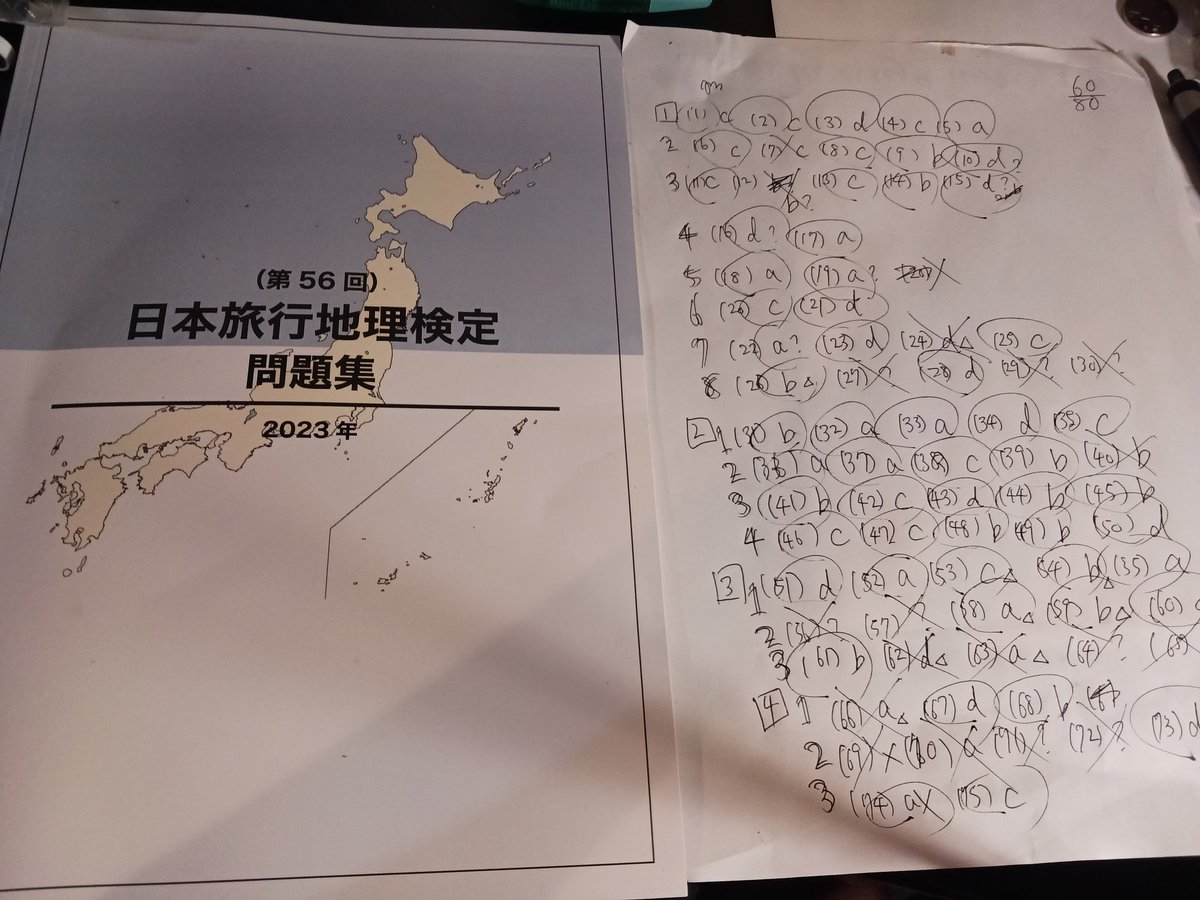 (第56回)
日本旅行地理検定
問題集
2023年
60
80
1 (1) c (2) c (3) d (4) c (5) a
2 (6) c (7) c (8) c (9) b (10) d?
3 (11) c (12) b? (13) c (14) b (15) d?
4 (16) d? (17) a
5 (18) a (19) a?
6 (20) c (21) d
7 (22) a? (23) d (24) d△ (25) c
8 (26) b△ (27) ? (28) d (29) ? (30) ?
2 1 (31) b (32) a (33) a (34) d (35) c
2 (36) a (37) a (38) c (39) b (40) b
3 (41) b (42) c (43) d (44) b (45) b
4 (46) c (47) c (48) b (49) b (50) d
3 1 (51) d (52) a (53) c△ (54) b△ (55) a
2 (56) ? (57) ? (58) a△ (59) b△ (60)
3 (61) b (62) d△ (63) a△ (64) ? (65)
4 1 (66) a△ (67) d (68) b
2 (69) × (70) a (71) ? (72) ? (73) d
3 (74) a× (75) c